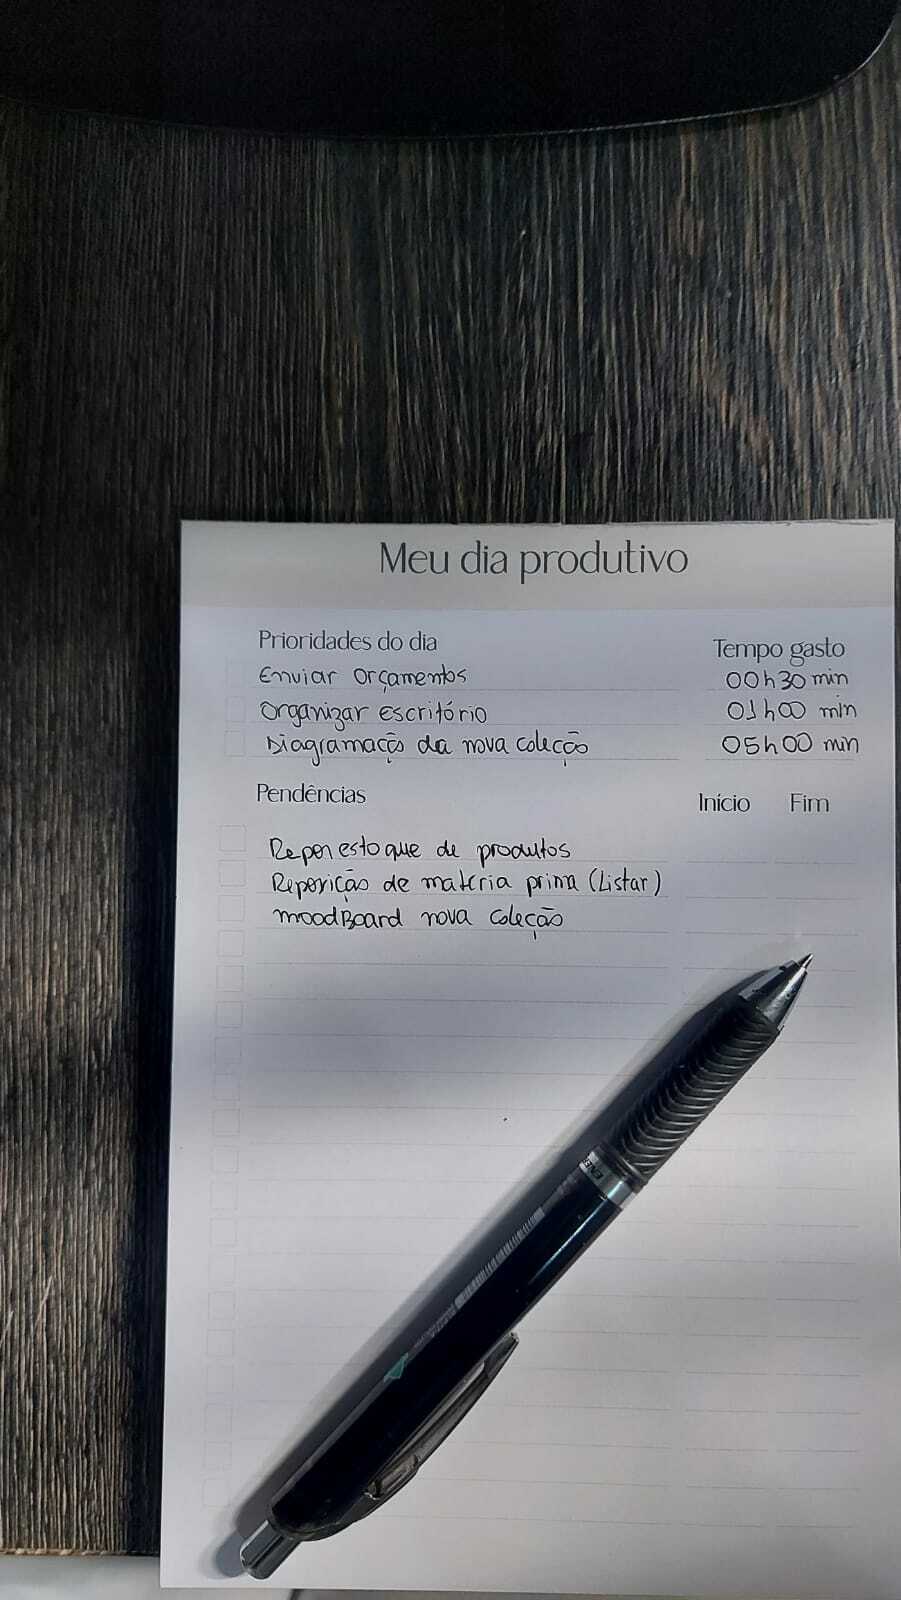 Meu dia produtivo
Prioridades do dia Tempo gasto
Enviar orçamentos 00h30 min
Organizar escritório 01h00 min
Diagramação da nova coleção 05h00 min
Pendências Início Fim
Repor estoque de produtos
Reposição de materia prima (Listar)
moodBoard nova coleção